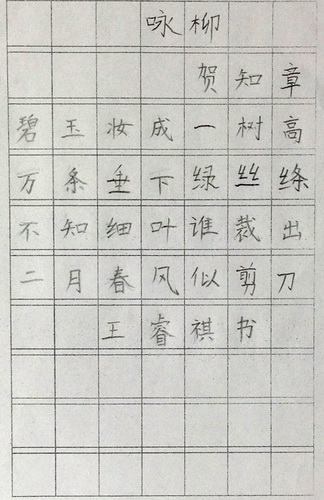 咏柳
贺知章
碧玉妆成一树高
万条垂下绿丝绦
不知细叶谁裁出
二月春风似剪刀
王睿祺书